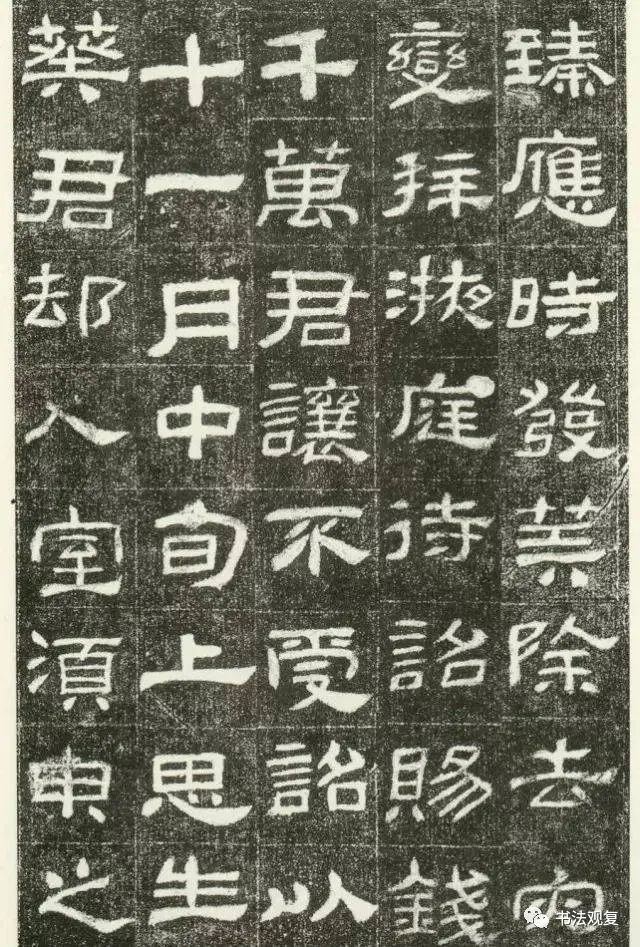 臻應時發筭除去灾
變拜掖庭待詔賜錢
千萬君讓不受詔以
十一月中旬上思生
葵君却入室須臾之
书法观复